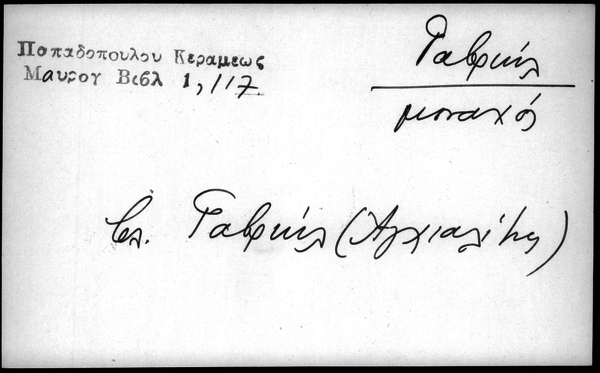 Παπαδοπουλου Κεραμεως
Μαυρογ Βιβλ 1, 117.
Γαβριήλ
μοναχός
βλ. Γαβριήλ (Αγχιαλίτης)